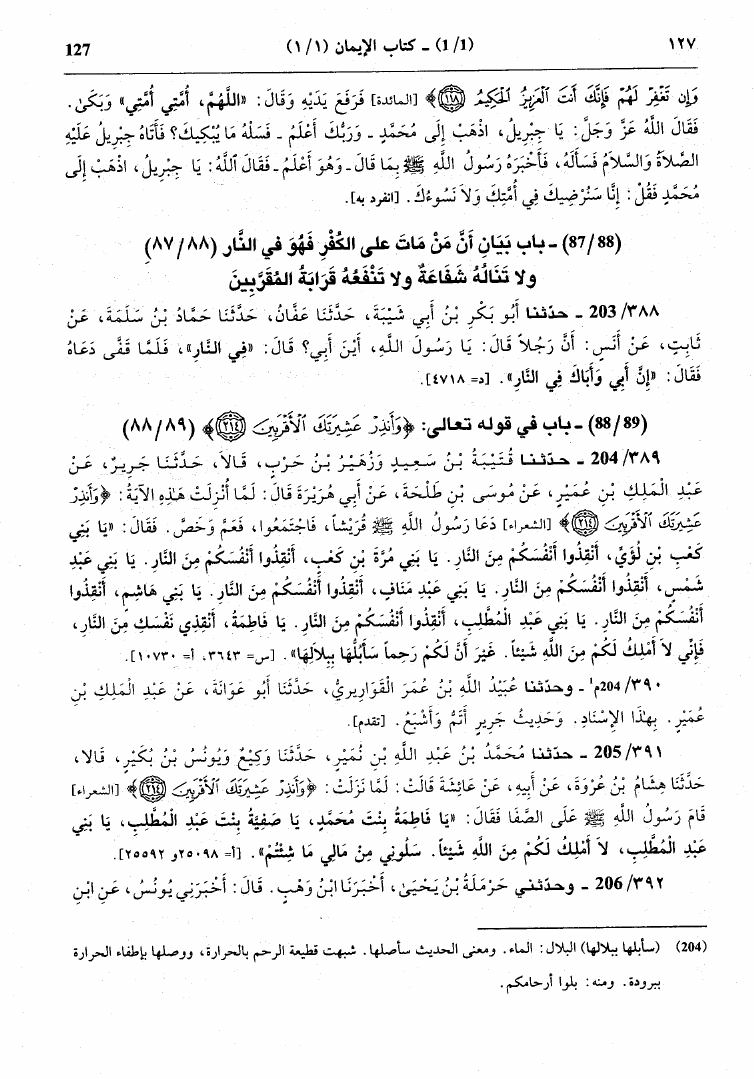 ١٢٧ (1/1) ـ كتاب الإيمان (١/١) 127
وَإِن تَغْفِرْ لَهُمْ فَإِنَّكَ أَنتَ الْعَزِيزُ الْحَكِيمُ ﴿١١٨﴾ [المائدة] فَرَفَعَ يَدَيْهِ وَقَالَ: «اللَّهُمَّ، أُمَّتِي أُمَّتِي» وَبَكَىٰ.
فَقَالَ اللَّهُ عَزَّ وَجَلَّ: يَا جِبْرِيلُ، اذْهَبْ إِلَى مُحَمَّدٍ ـ وَرَبُّكَ أَعْلَمُ ـ فَسَلْهُ مَا يُبْكِيكَ؟ فَأَتَاهُ جِبْرِيلُ عَلَيْهِ
الصَّلاَةُ وَالسَّلاَمُ فَسَأَلَهُ، فَأَخْبَرَهُ رَسُولُ اللَّهِ ﷺ بِمَا قَالَ ـ وَهُوَ أَعْلَمُ ـ فَقَالَ اللَّهُ: يَا جِبْرِيلُ، اذْهَبْ إِلَى
مُحَمَّدٍ فَقُلْ: إِنَّا سَنُرْضِيكَ فِي أُمَّتِكَ وَلاَ نَسُوءُكَ. [انفرد به].
(87/88) ـ باب بَيَانِ أَنَّ مَنْ مَاتَ على الكُفْرِ فَهُوَ في النَّار (٨٧/٨٨)
ولا تَنَالُهُ شَفَاعَةٌ ولا تَنْفَعُهُ قَرَابَةُ المُقَرَّبِينَ
203/٣٨٨ ـ حدّثنا أَبُو بَكْرِ بْنُ أَبِي شَيْبَةَ، حَدَّثَنَا عَفَّانُ، حَدَّثَنَا حَمَّادُ بْنُ سَلَمَةَ، عَنْ
ثَابِتٍ، عَنْ أَنَسٍ: أَنَّ رَجُلاً قَالَ: يَا رَسُولَ اللَّهِ، أَيْنَ أَبِي؟ قَالَ: «فِي النَّارِ»، فَلَمَّا قَفَّى دَعَاهُ
فَقَالَ: «إِنَّ أَبِي وَأَبَاكَ فِي النَّارِ». [د= ٤٧١٨].
(88/89) ـ باب في قوله تعالى: ﴿وَأَنذِرْ عَشِيرَتَكَ الْأَقْرَبِينَ ﴿٢١٤﴾﴾ (٨٨/٨٩)
204/٣٨٩ ـ حدّثنا قُتَيْبَةُ بْنُ سَعِيدٍ وَزُهَيْرُ بْنُ حَرْبٍ، قَالاَ، حَدَّثَنَا جَرِيرٌ، عَنْ
عَبْدِ الْمَلِكِ بْنِ عُمَيْرٍ، عَنْ مُوسَى بْنِ طَلْحَةَ، عَنْ أَبِي هُرَيْرَةَ قَالَ: لَمَّا أُنْزِلَتْ هَذِهِ الآيَةُ: ﴿وَأَنذِرْ
عَشِيرَتَكَ الْأَقْرَبِينَ ﴿٢١٤﴾﴾ [الشعراء] دَعَا رَسُولُ اللَّهِ ﷺ قُرَيْشاً، فَاجْتَمَعُوا، فَعَمَّ وَخَصَّ. فَقَالَ: «يَا بَنِي
كَعْبِ بْنِ لُؤَيٍّ، أَنْقِذُوا أَنْفُسَكُمْ مِنَ النَّارِ. يَا بَنِي مُرَّةَ بْنِ كَعْبٍ، أَنْقِذُوا أَنْفُسَكُمْ مِنَ النَّارِ. يَا بَنِي عَبْدِ
شَمْسٍ، أَنْقِذُوا أَنْفُسَكُمْ مِنَ النَّارِ. يَا بَنِي عَبْدِ مَنَافٍ، أَنْقِذُوا أَنْفُسَكُمْ مِنَ النَّارِ. يَا بَنِي هَاشِمٍ، أَنْقِذُوا
أَنْفُسَكُمْ مِنَ النَّارِ. يَا بَنِي عَبْدِ الْمُطَّلِبِ، أَنْقِذُوا أَنْفُسَكُمْ مِنَ النَّارِ. يَا فَاطِمَةُ، أَنْقِذِي نَفْسَكِ مِنَ النَّارِ،
فَإِنِّي لاَ أَمْلِكُ لَكُمْ مِنَ اللَّهِ شَيْئاً. غَيْرَ أَنَّ لَكُمْ رَحِماً سَأَبُلُّهَا بِبِلاَلِهَا». [س= ٣٦٤٣، أ= ١٠٧٣٠].
204/٣٩٠م¹ ـ وحدّثنا عُبَيْدُ اللَّهِ بْنُ عُمَرَ الْقَوَارِيرِيُّ، حَدَّثَنَا أَبُو عَوَانَةَ، عَنْ عَبْدِ الْمَلِكِ بْنِ
عُمَيْرٍ. بِهٰذَا الإِسْنَادِ. وَحَدِيثُ جَرِيرٍ أَتَمُّ وَأَشْبَعُ. [تقدم].
205/٣٩١ ـ حدّثنا مُحَمَّدُ بْنُ عَبْدِ اللَّهِ بْنِ نُمَيْرٍ، حَدَّثَنَا وَكِيعٌ وَيُونُسُ بْنُ بُكَيْرٍ، قَالا،
حَدَّثَنَا هِشَامُ بْنُ عُرْوَةَ، عَنْ أَبِيهِ، عَنْ عَائِشَةَ قَالَتْ: لَمَّا نَزَلَتْ: ﴿وَأَنذِرْ عَشِيرَتَكَ الْأَقْرَبِينَ ﴿٢١٤﴾﴾ [الشعراء]
قَامَ رَسُولُ اللَّهِ ﷺ عَلَى الصَّفَا فَقَالَ: «يَا فَاطِمَةُ بِنْتَ مُحَمَّدٍ، يَا صَفِيَّةُ بِنْتَ عَبْدِ الْمُطَّلِبِ، يَا بَنِي
عَبْدِ الْمُطَّلِبِ، لاَ أَمْلِكُ لَكُمْ مِنَ اللَّهِ شَيْئاً. سَلُونِي مِنْ مَالِي مَا شِئْتُمْ». [أ= ٢٥٠٩٨ و ٢٥٥٩٢].
206/٣٩٢ ـ وحدّثني حَرْمَلَةُ بْنُ يَحْيَىٰ، أَخْبَرَنَا ابْنُ وَهْبٍ. قَالَ: أَخْبَرَنِي يُونُسُ، عَنِ ابْنِ
(204) (سأبلها ببلالها) البلال: الماء. ومعنى الحديث سأصلها. شبهت قطيعة الرحم بالحرارة، ووصلها بإطفاء الحرارة
ببرودة. ومنه: بلوا أرحامكم.